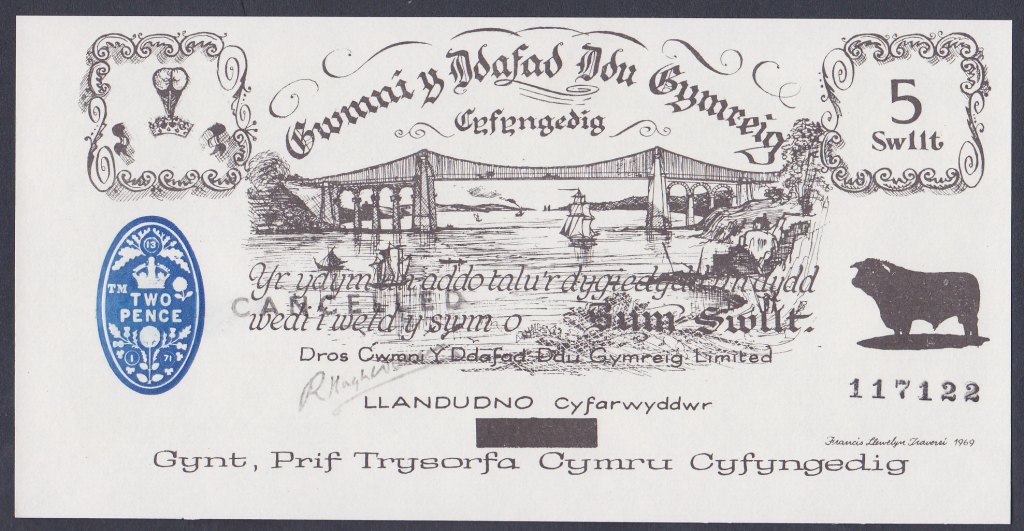 Cwmni y Ddafad Ddu Gymreig
Cyfyngedig
5
Swllt
13
TM TWO
PENCE
1 71
Yr ydym yn addo talu'r dygiedydd
CANCELLED
wedi i weld y swm o Bum Swllt.
Dros Cwmni Y Ddafad Ddu Gymreig Limited
R Hughes
LLANDUDNO Cyfarwyddwr
117122
Francis Llewelyn Traverei 1969
Gynt, Prif Trysorfa Cymru Cyfyngedig